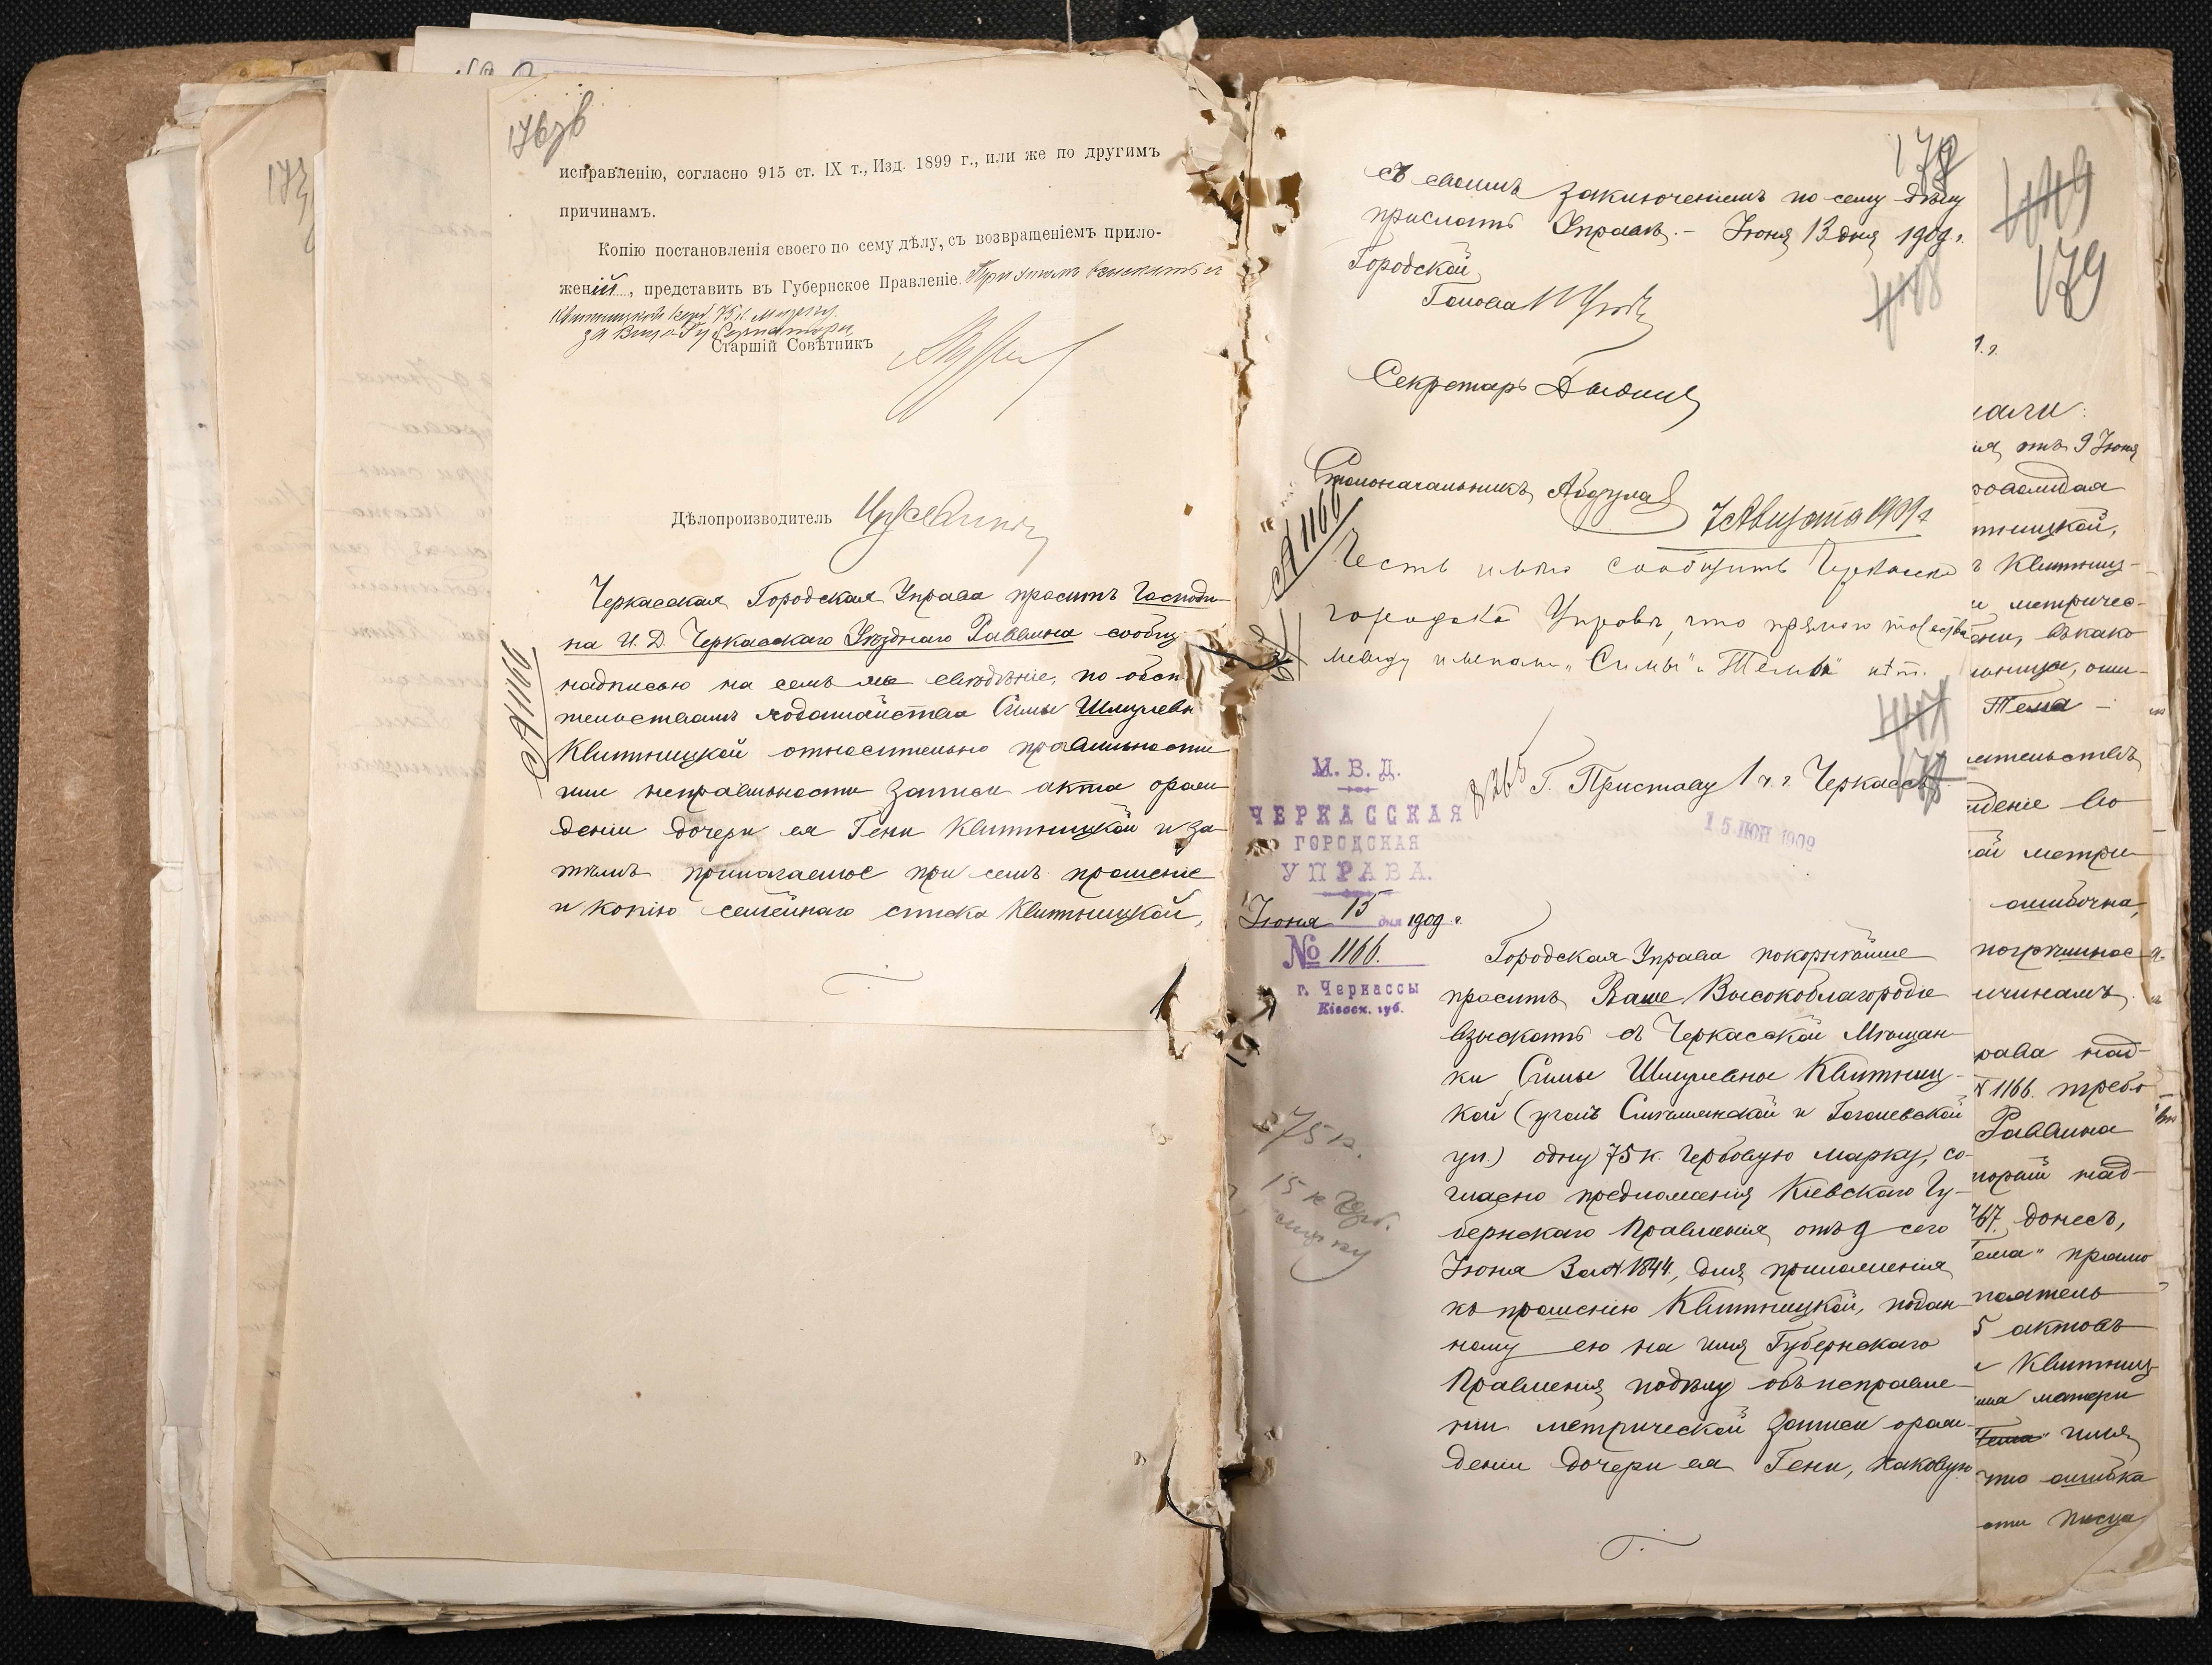 176 об
исправленію, согласно 915 ст. IX т., Изд. 1899 г., или же по другимъ
причинамъ.
Копію постановленія своего по сему дѣлу, съ возвращеніемъ прило-
женій, представить въ Губернское Правленіе. При этомъ взыскать съ
Квитницкой герб. 75 к. марку.
За Вице-Губернатора
Старшій Совѣтникъ
Дѣлопроизводитель
Черкасская Городская Управа проситъ Господи-
на И. Д. Черкасскаго Уѣзднаго Раввина сообщ
надписью на семъ же свѣдѣніе, по обст
тельствамъ ходатайства Симы Шмулевн
Квитницкой относительно правильности
или неправильности записи акта о рож
деніи дочери ея Гени Квитницкой и за-
тѣмъ прилагаемое при семъ прошеніе
и копію семейнаго списка Квитницкой,
№ 1166
173
178
съ своимъ заключеніемъ по сему дѣлу
прислать Управѣ. – Іюня 13 дня 1909 г.
Городской
Голова
418
Секретарь
Столоначальникъ
№ 1166
7 Августа 1909 г
Честь имѣю сообщить Черкасско
городской Управѣ, что прямого тожества
между именами „Симы" и „Темы" нѣтъ.
417
Г. Приставу 1 ч. г. Черкассъ
15 ІЮН 1909
М. В. Д.
ЧЕРКАССКАЯ
ГОРОДСКАЯ
УПРАВА.
Іюня 15 дня 1909 г.
№ 1166.
г. Черкассы
Кіевск. губ.
Городская Управа покорнѣйше
проситъ Ваше Высокоблагородіе
взыскать съ Черкасской Мѣщан-
ки Симы Шмулевны Квитниц-
кой (уголъ Смѣлянской и Гоголевской
ул.) одну 75 к. гербовую марку, со-
гласно предложенія Кіевскаго Гу-
бернскаго Правленія, отъ 9 сего
Іюня за № 1844, для приложенія
къ прошенію Квитницкой, подан-
ному ею на имя Губернскаго
Правленія по дѣлу объ исправле-
ніи метрической записи о рож-
деніи дочери ея Гени, каковую
75 к.
15 к. герб.
марку
419
179
1. г.
али:
ія, отъ 9 Іюня
тницкой,
Квитниц-
и метричес-
Тема –
деніе во
ой метри
ошибочна,
погрѣшнос
ичинамъ,
рава над-
№ 1166. требо
Раввина
торый над-
767, донесъ,
ема" прямо
5 актовъ
Квитниц
матери
Тема" имя
что ошибка
сти писца